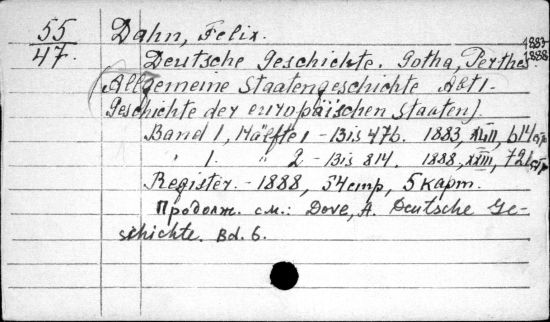 55
47.
Dahn, Felix.
Deutsche Geschichte. Gotha, Perthes 1883-1888
(Allgemeine Staatengeschichte Abt 1-
Geschichte der europäischen Staaten).
Band 1, Hälfte 1 - Bis 476. 1883, XVIII, 614 стр
" 1. " 2 - Bis 814. 1888, XXIII, 726 стр
Register. - 1888, 54 стр, 5 карт.
Продолж. см.: Dove, A. Deutsche Ge-
schichte. Bd. 6.